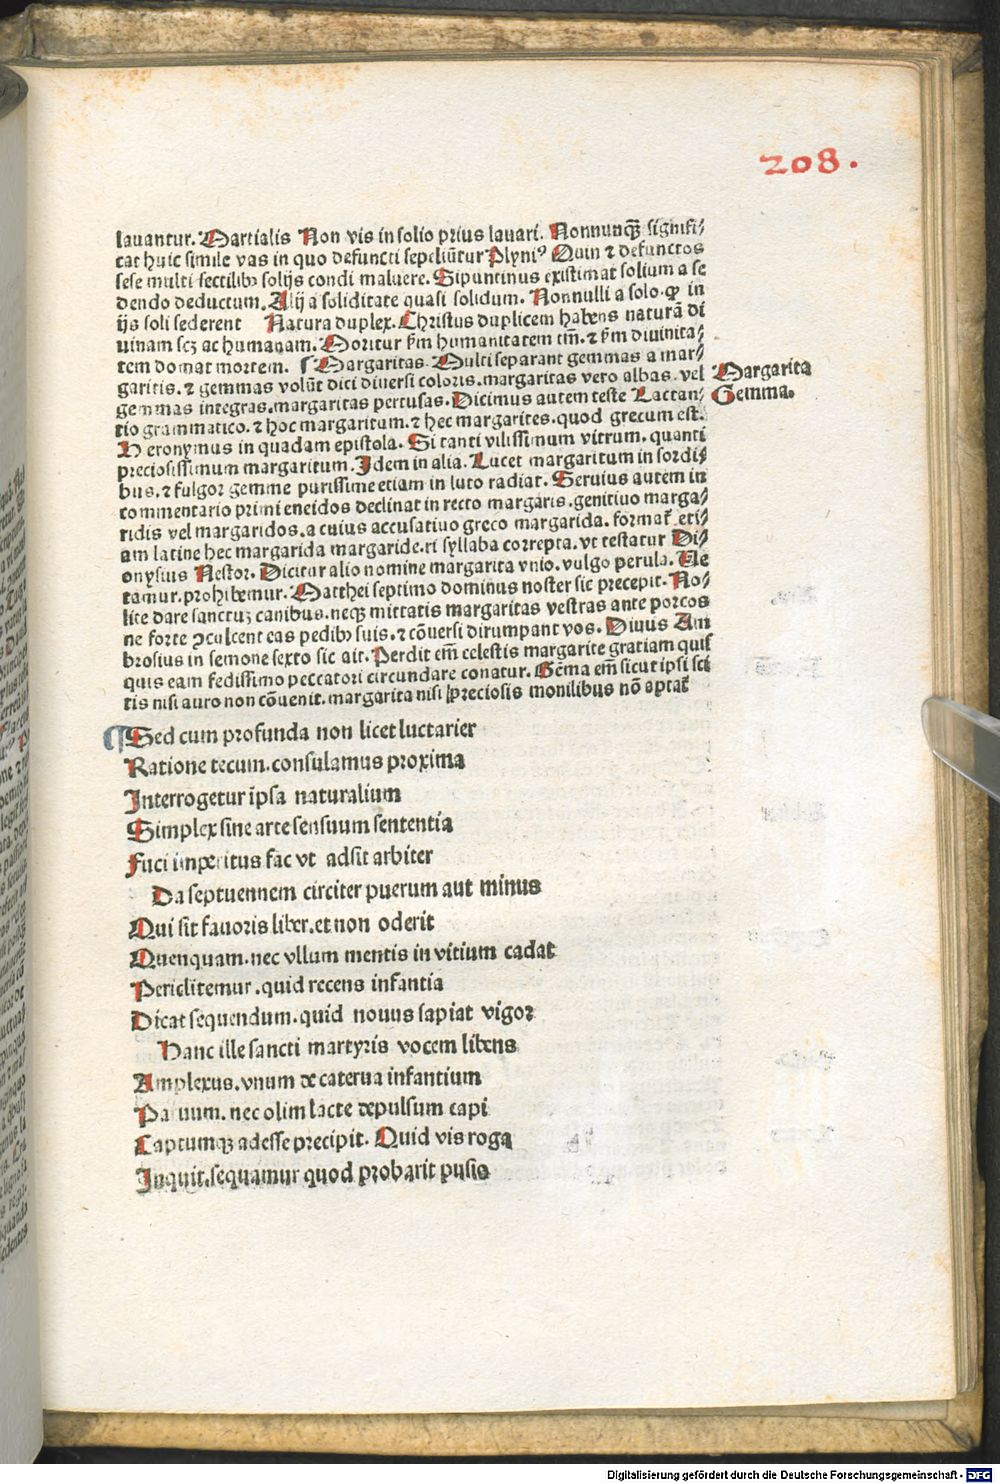 208.
lauantur. Martialis Non vis in solio prius lauari. Nonnunqꝫ signifi⸗
cat huic simile vas in quo defuncti sepeliũtur Plyniꝰ Quin ⁊ defunctos
sese multi fectilibꝫ solijs condi maluere. Sipuntinus existimat solium a se
dendo deductum. Alij a soliditate quasi solidum. Nonnulli a solo. ꝙ in
ijs soli sederent Natura duplex. Christus duplicem habens naturã di
uinam scꝫ ac humanam. Moritur ẜm humanitatem tm̃. ⁊ ẜm diuinita⸗
tem domat mortem. ¶ Margaritas. Multi separant gemmas a mar⸗
garitis. ⁊ gemmas volũt dici diuersi coloris. margaritas vero albas. vel
gemmas integras. margaritas pertusas. Dicimus autem teste Lactan⸗
tio grammatico. ⁊ hoc margaritum. ⁊ hec margarites. quod grecum est.
Hieronymus in quadam epistola. Si tanti vilissimum vitrum. quanti
preciosissimum margaritum. Idem in alia. Lucet margaritum in sordi⸗
bus. ⁊ fulgor gemme purissime etiam in luto radiat. Seruius autem in
commentario primi eneidos declinat in recto margaris. genitiuo marga⸗
ridis vel margaridos. a cuius accusatiuo greco margarida. format̃ eti⸗
am latine hec margarida margaride. ri syllaba correpta. vt testatur Di⸗
onysius Nestor. Dicitur alio nomine margarita vnio. vulgo perula. Ue
tamur. prohibemur. Matthei septimo dominus noster sic precepit. No⸗
lite dare sanctuꝫ canibus. neqꝫ mittatis margaritas vestras ante porcos
ne forte ꝯculcent eas pedibꝫ suis. ⁊ cõuersi dirumpant vos. Diuus Am
brosius in semone sexto sic ait. Perdit em̃ celestis margarite gratiam quis
quis eam fedissimo peccatori circundare conatur. Gẽma em̃ sicut ipsi sci
tis nisi auro non cõuenit. margarita nisi preciosis monilibus nõ aptat̃
Margarita
Gemma.
¶ Sed cum profunda non licet luctarier
Ratione tecum. consulamus proxima
Interrogetur ipsa naturalium
Simplex sine arte sensuum sententia
Fuci imperitus fac vt adsit arbiter
Da septuennem circiter puerum aut minus
Qui sit fauoris liber. et non oderit
Quenquam. nec vllum mentis in vitium cadat
Periclitemur. quid recens infantia
Dicat sequendum. quid nouus sapiat vigor
Hanc ille sancti martyris vocem libens
Amplexus. vnum de caterua infantium
Paruum. nec olim lacte depulsum capi
Captumqꝫ adesse precipit. Quid vis roga
Inquit. sequamur quod probarit pusio
Digitalisierung gefördert durch die Deutsche Forschungsgemeinschaft - DFG